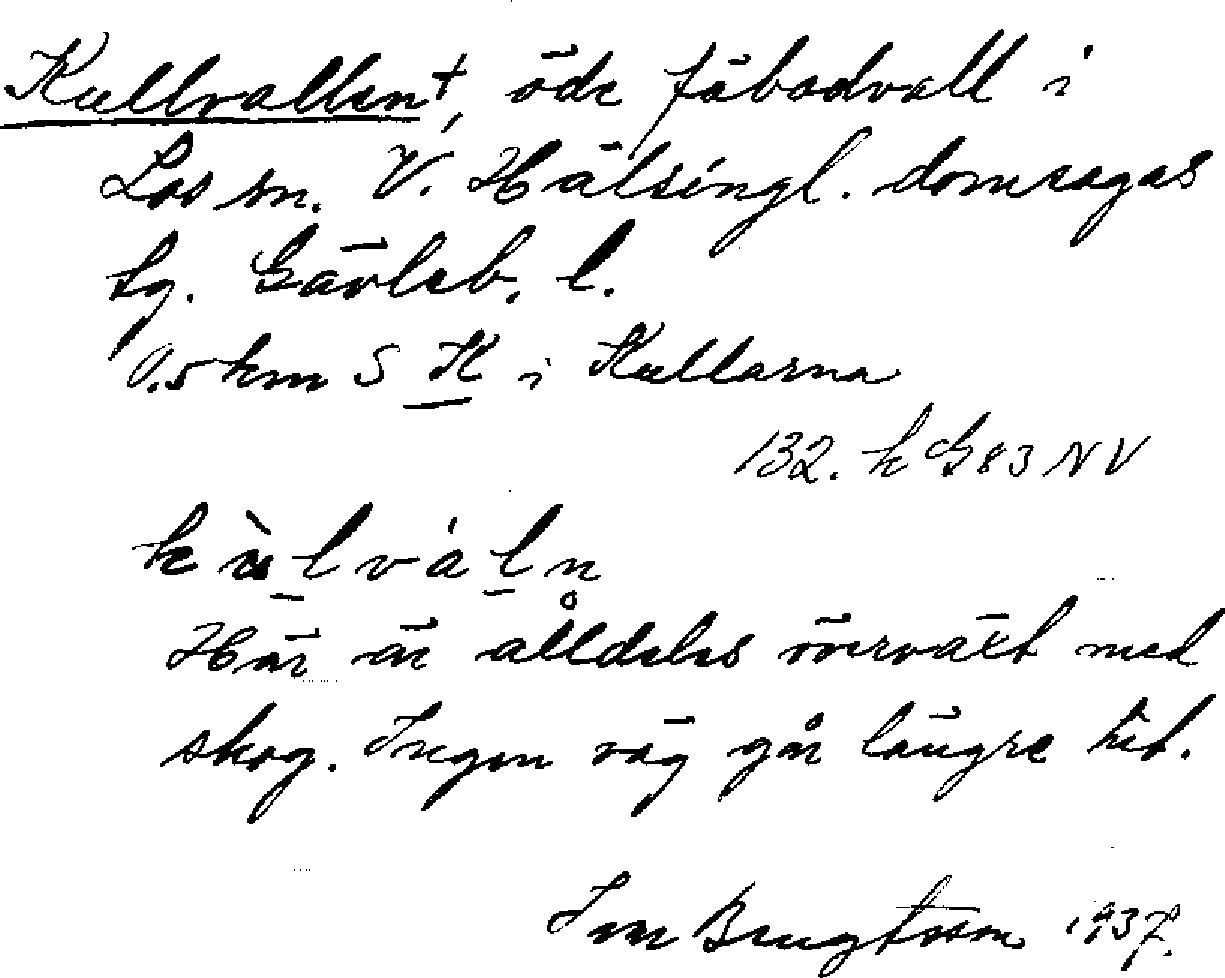 Kullvallen†, öde fäbodvall i
Los sn. V. Hälsingl. domsagas
tg. Gävleb. l.
0.5 km S K i Kullarna
132. k G 83 NV
kùl̲vál̲n̥
Här är alldeles överväxt med
skog. Ingen väg går längre hit.
Ivar Bengtsson 1937.